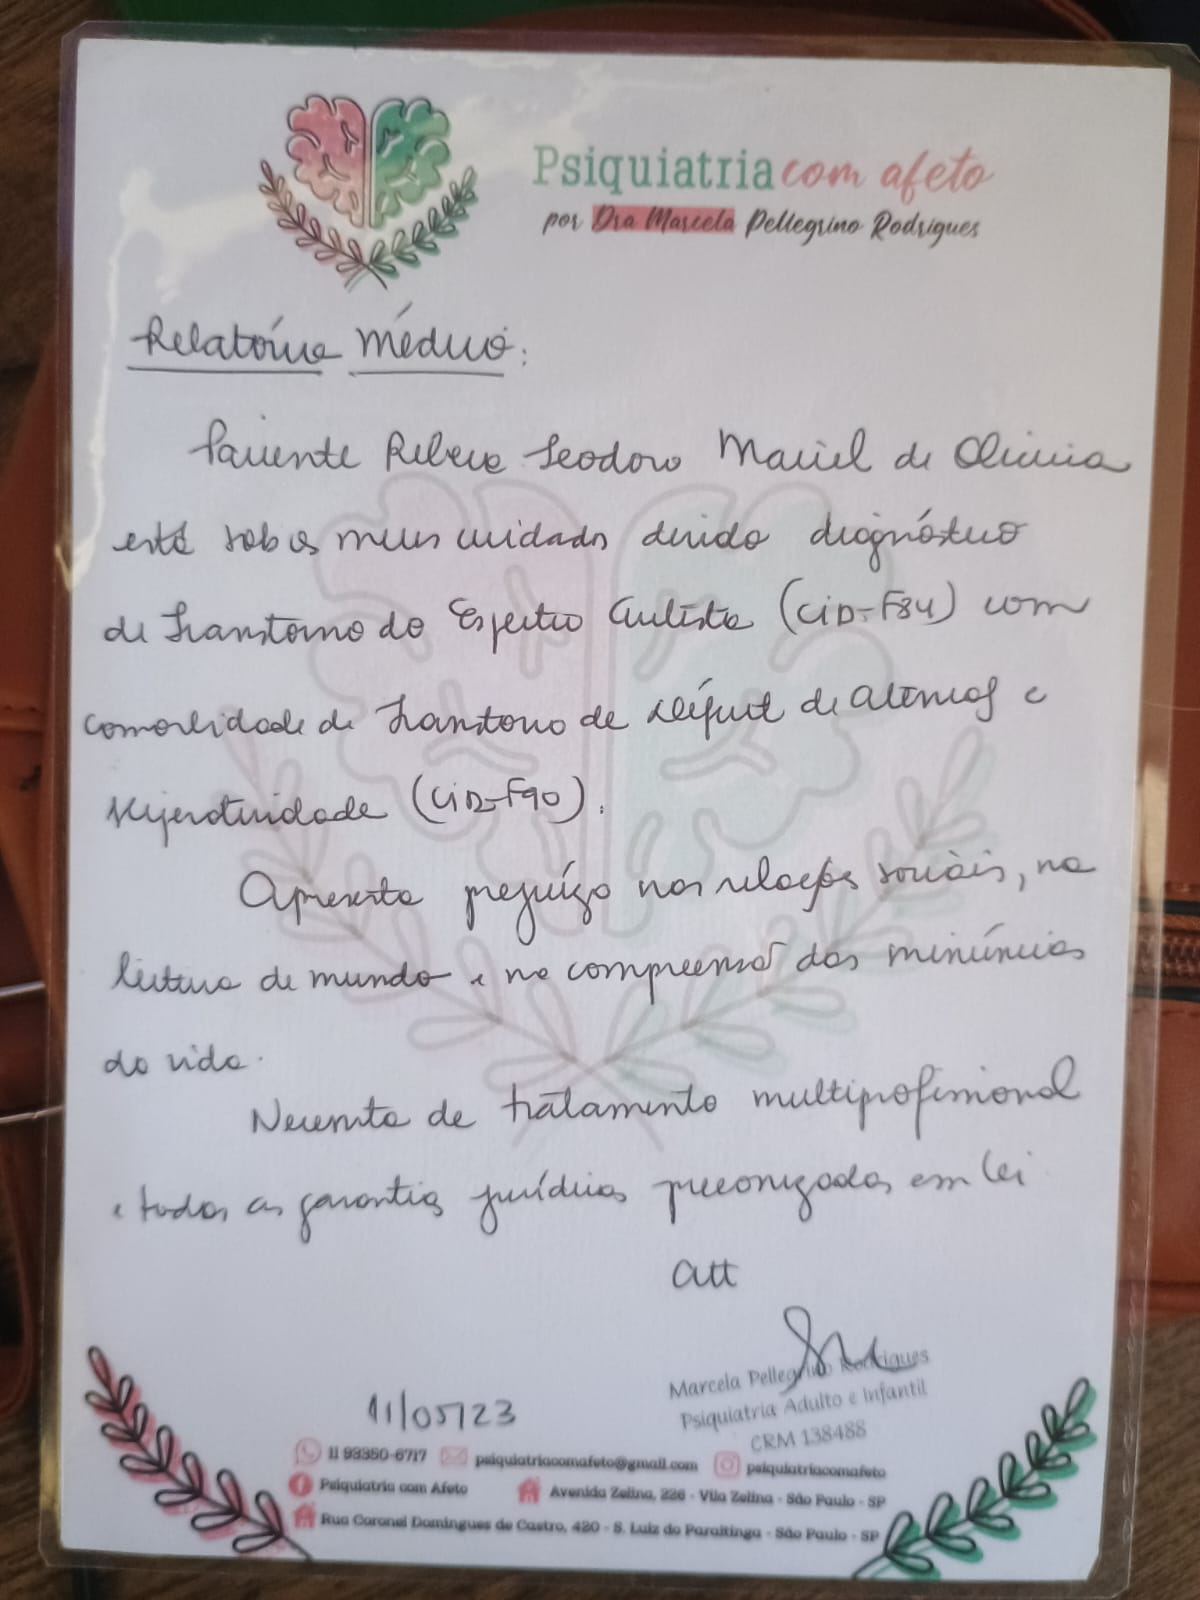 Psiquiatria com afeto
por Dra Marcela Pellegrino Rodrigues
Relatório Médico:
Paciente Rebeca Teodoro Maciel de Oliveira
está sob os meus cuidados devido diagnóstico
de Transtorno do Espectro Autista (CID-F84) com
comorbidade de Transtorno de Déficit de Atenção e
Hiperatividade (CID-F90).
Apresenta prejuízo nas relações sociais, na
leitura de mundo e na compreensão das minúncias
da vida.
Necessita de tratamento multiprofissional
e todas as garantias jurídicas preconizadas em lei
att
Marcela Pellegrino Rodrigues
Psiquiatria Adulto e Infantil
CRM 138488
11/05/23
11 93350-6717 psiquiatriacomafeto@gmail.com psiquiatriacomafeto
Psiquiatria com Afeto Avenida Zelina, 226 - Vila Zelina - São Paulo - SP
Rua Coronel Domingues de Castro, 420 - S. Luiz do Paraitinga - São Paulo - SP